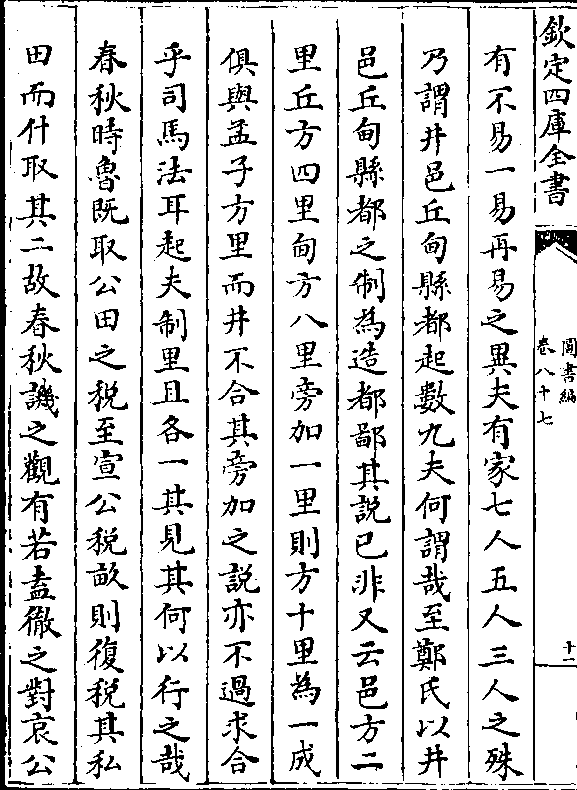 欽定四庫全書
圖書編
卷八十七
十二
有不易一易再易之異夫有家七人五人三人之殊
乃謂井邑丘甸縣都起數九夫何謂哉至鄭氏以井
邑丘甸縣都之制為造都鄙其說已非又云邑方二
里丘方四里甸方八里旁加一里則方十里為一成
俱與孟子方里而井不合其旁加之說亦不過求合
乎司馬法耳起夫制里且各一其見其何以行之哉
春秋時魯既取公田之稅至宣公稅畝則復稅其私
田而什取其二故春秋譏之觀有若盍徹之對哀公